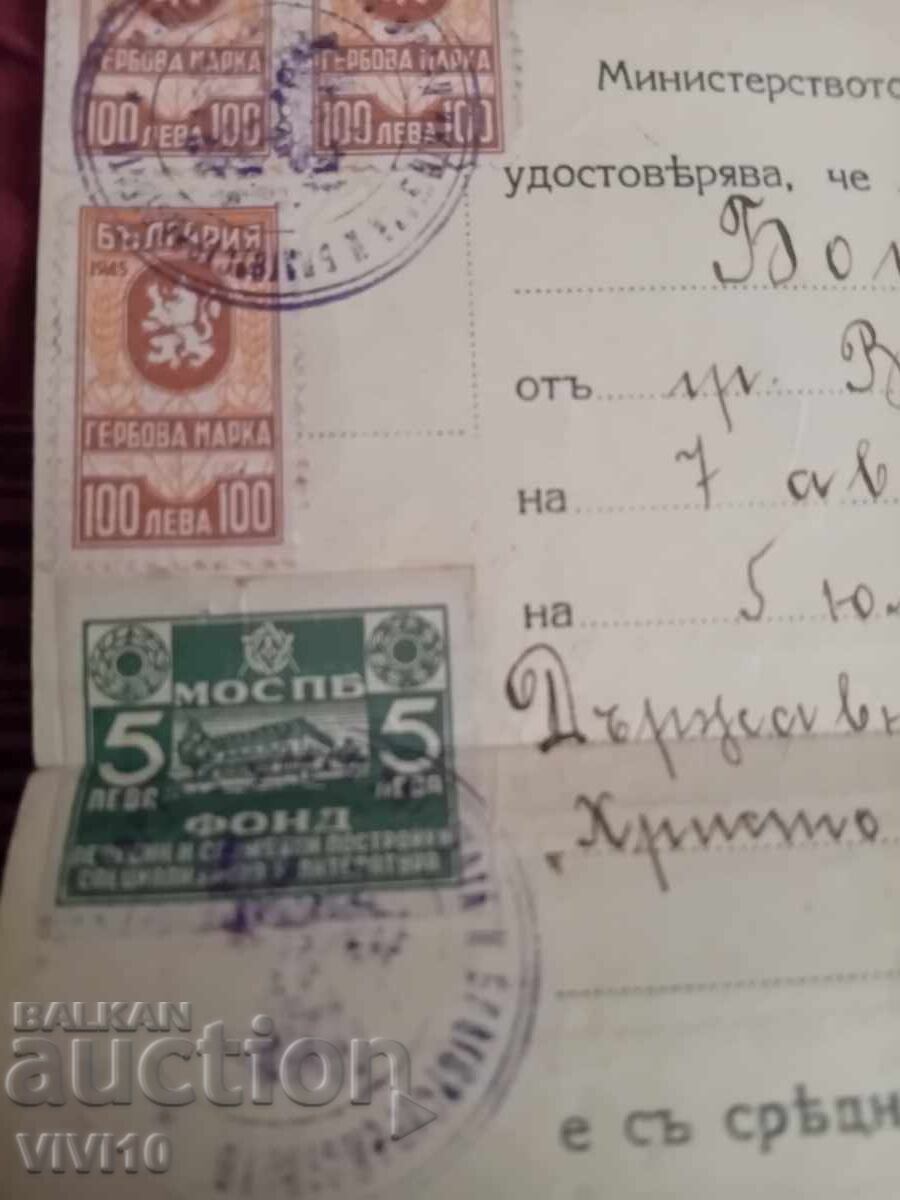 ГЕРБОВА МАРКА
100 ЛЕВА 100
ГЕРБОВА МАРКА
100 ЛЕВА 100
БЪЛГАРИЯ
1945
ГЕРБОВА МАРКА
100 ЛЕВА 100
МОСПБ
5 5
ЛЕВА ЛЕВА
ФОНД
ПОСТРОЙКИ
ЛИТЕРАТУРА
Министерството
удостовѣрява, че
отъ гр.
на 7 ав
на 5 юл
Държавн
„Христо
е съ срѣдн
BALKAN
auction
VIVI10